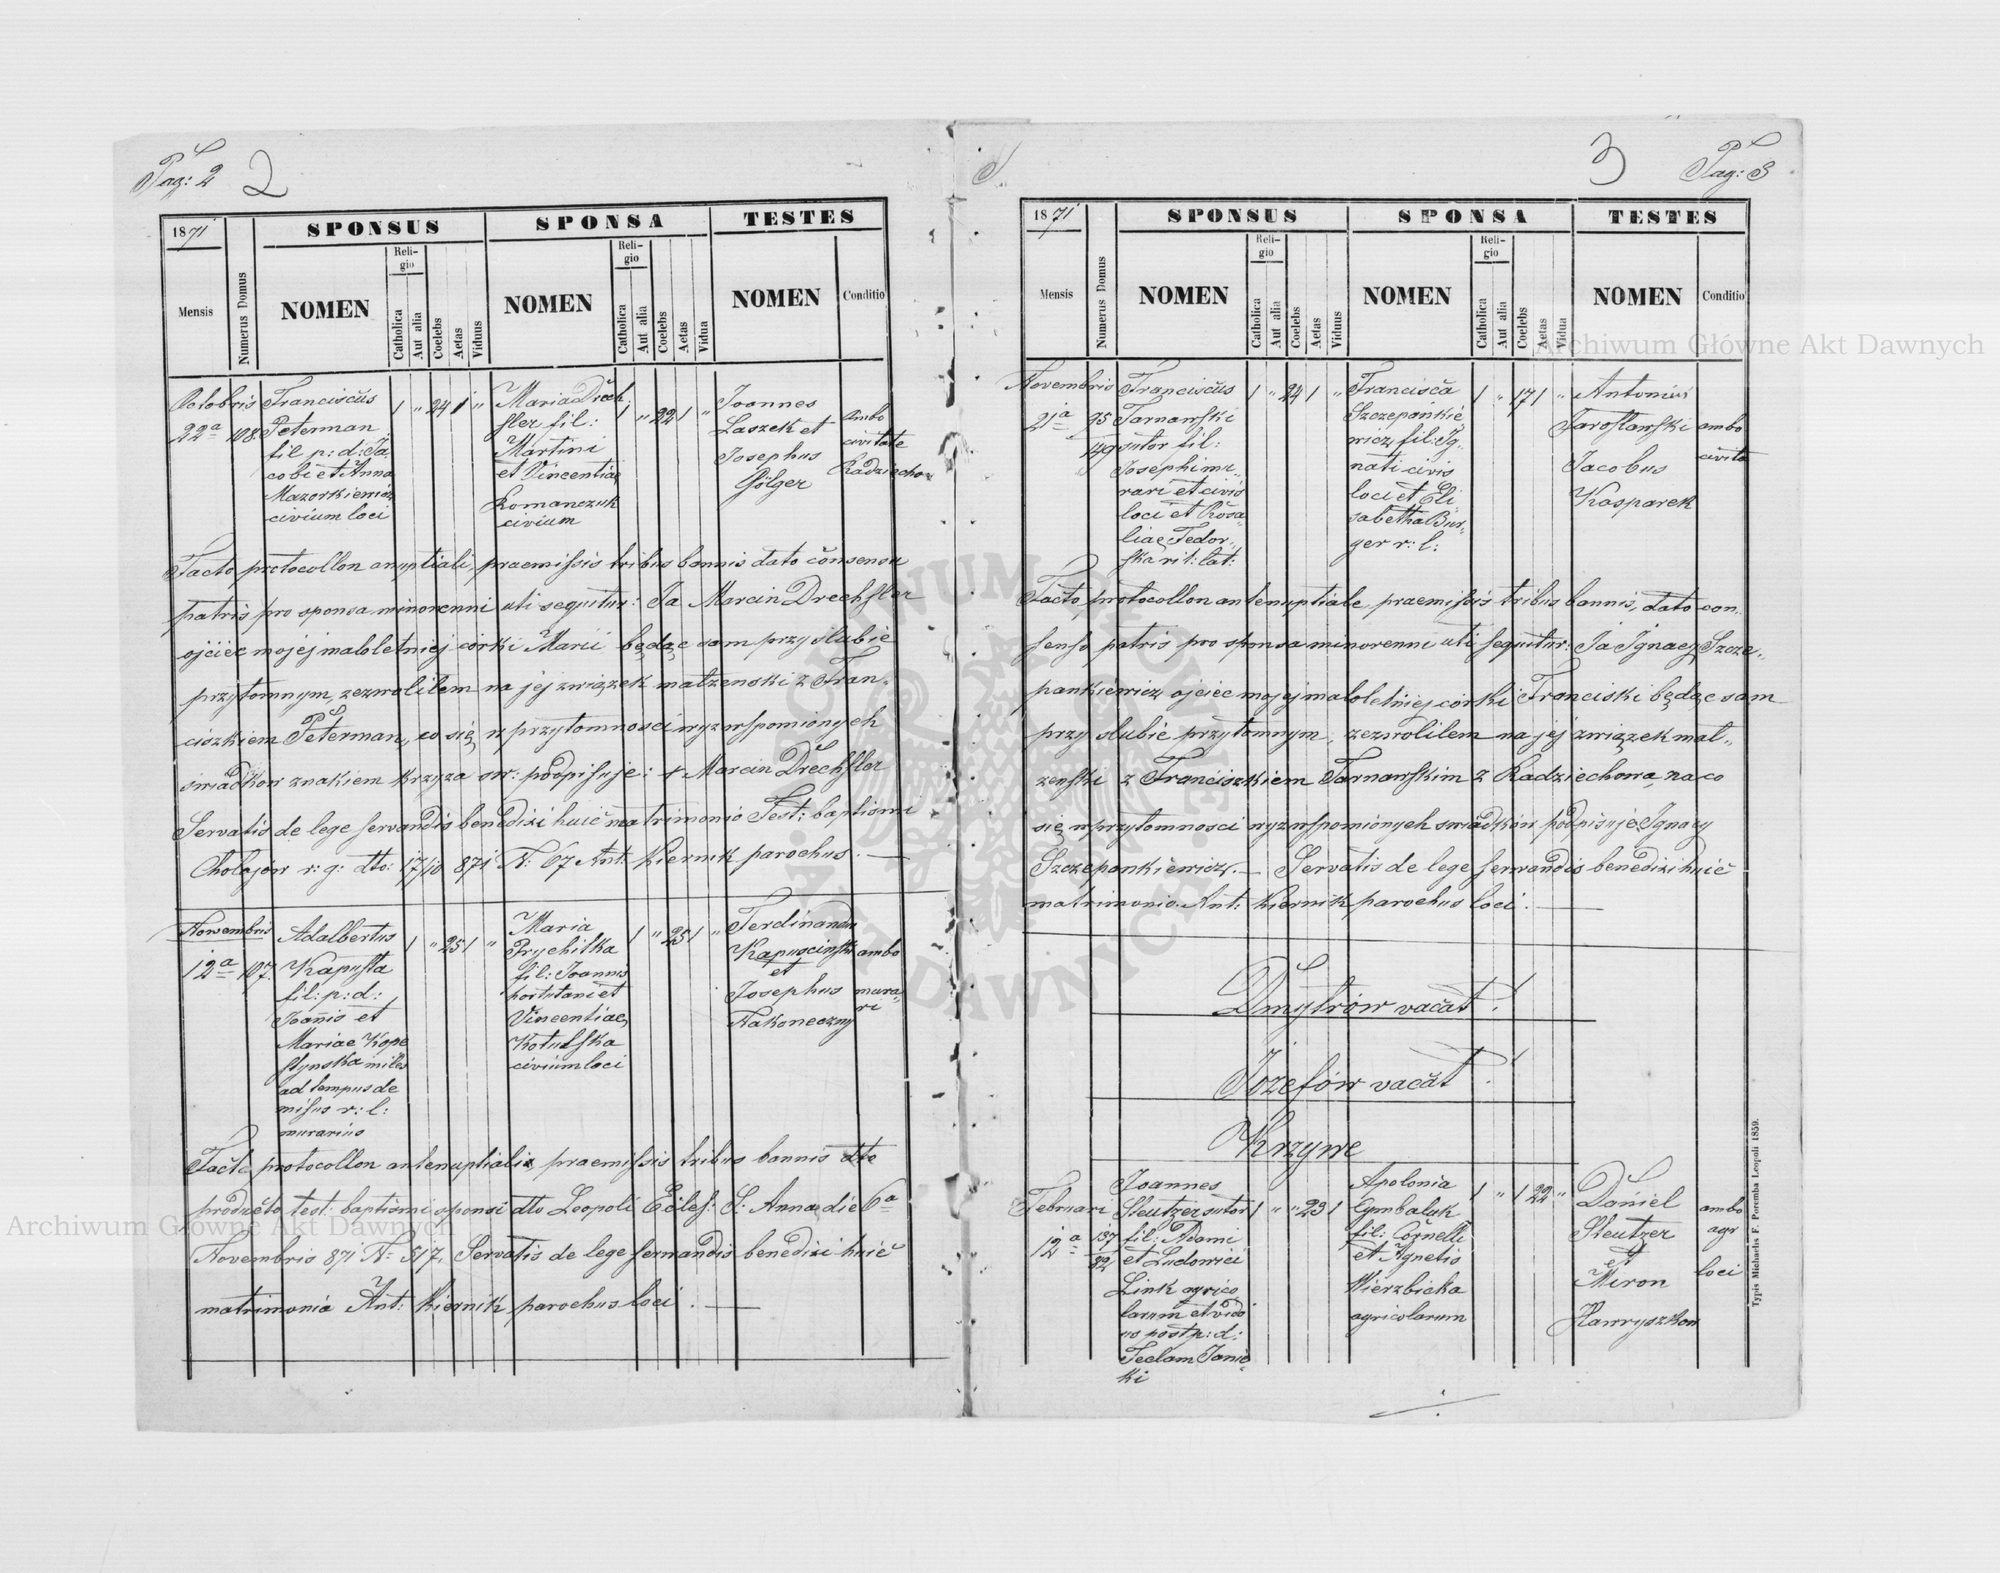 Pag: 2 2
1871
SPONSUS
SPONSA
TESTES
Mensis
Numerus Domus
NOMEN
Religio
Catholica
Aut alia
Coelebs
Aetas
Viduus
NOMEN
Religio
Catholica
Aut alia
Coelebs
Aetas
Vidua
NOMEN
Conditio
Octobris
22ª 108
Franciscus
Peterman
fil p: d: Ja
cobi et Anna
Mazorkiewicz
civium loci
1 " 24 1 "
Maria Drech
sler fil:
Martini
et Vincentiae
Romanczuk
civium
1 " 22 1 "
Joannes
Laszek et
Josephus
Gölger
ambo
civitate
Radziechow
Facto protocollon anuptiali, praemissis tribus bannis dato consensu
patris pro sponsa minorenni uti sequitur: Ja Marcin Drechsler
ojciec mojej maloletniej córki Marii będąc sam przy slubie
przytomnym, zezwolilem na jej związek malzenski z Fran„
ciszkiem Peterman, co się w przytomnosci wyzwspomionych
swiadkow znakiem krzyza sw: podpisuje: + Marcin Drechsler
Servatis de lege servandis benedixi huic matrimonio Test: baptismi
Cholojów r: g: dto: 17/10 871 N: 67 Ant: Kiernik parochus. —
Novembris
12ª 107.
Adalbertus
Kapusta
fil: p: d:
Joannis et
Mariae Kope
stynska miles
ad tempus de
misus r: l:
murarius
1 " 25 1 "
Maria
Prychitka
fil: Joannis
portulani et
Vincentiae
Kotulska
civium loci
1 " 25 1 "
Ferdinandu
Kapuscinski
et
Josephus
Nakoneczny
ambo
mura„
ri
Facto protocollon antenuptialia praemissis tribus bannis dto
producto test: baptismi sponsi dto Leopoli Eccles: S: Annae die 6ª
Novembris 871 N= 517. Servatis de lege servandis benedixi huic
matrimonia Ant: Kiernik parochus loci. —
3 Pag: 3
1871
SPONSUS
SPONSA
TESTES
Mensis
Numerus Domus
NOMEN
Religio
Catholica
Aut alia
Coelebs
Aetas
Viduus
NOMEN
Religio
Catholica
Aut alia
Coelebs
Aetas
Vidua
NOMEN
Conditio
Novembris
21ª 95
149
Franciscus
Tarnawski
sutor fil:
Josephi mu„
rari et civis
loci et Rosa„
liae Fedor„
ska rit: lat:
1 " 24 1 "
Francisca
Szczepankie
wicz, fil: Ig„
nati civis
loci et Eli
sabetha Bur„
ger r: l:
1 " 17 1 "
Antonius
Jaroslawski
Jacobus
Kasparek
ambo
civita
Facto protocollon antenuptiale, praemissis tribus bannis, dato con„
senso patris pro sponsa minorenni uti sequitur: Ja Ignacy Szcze„
pankiewicz ojciec mojej maloletniej córki Franciski będąc sam
przy slubie przytomnym, zezwolilem na jej związek mal„
zenski z Franciszkiem Tarnawskim z Radziechowa, na co
się w przytomnosci wyzwspomionych swiadków podpisuje Ignacy
Szczepankiewicz. — Servatis de lege servandis benedixi huic
matrimonio. Ant: Kiernik parochus loci. —
Dmytrów vacat!
Józefów vacat!
Krzywe
Februari
12ª 137
82
Joannes
Steutzer sutor
fil: Adami
et Ludowici
Link agrico
larum et vidu
us post p: d:
Teclam Janic„
ki
1 " " 23 1
Apolonia
Cymbaluk
fil: Cornelli
et Agnetis
Wierzbicka
agricolarum
1 " 1 22 "
Daniel
Steutzer
et
Miron
Hawryszkow
ambo
agr
loci
Typis Michaelis F. Poremba Leopoli 1859.
Archiwum Główne Akt Dawnych
Archiwum Główne Akt Dawnych
ARCHIWUM GŁÓWNE AKT DAWNYCH